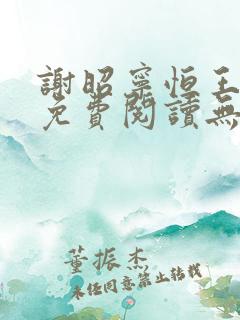 謝昭寧恒王
免費閱讀無
董振杰
未任同意禁止转载